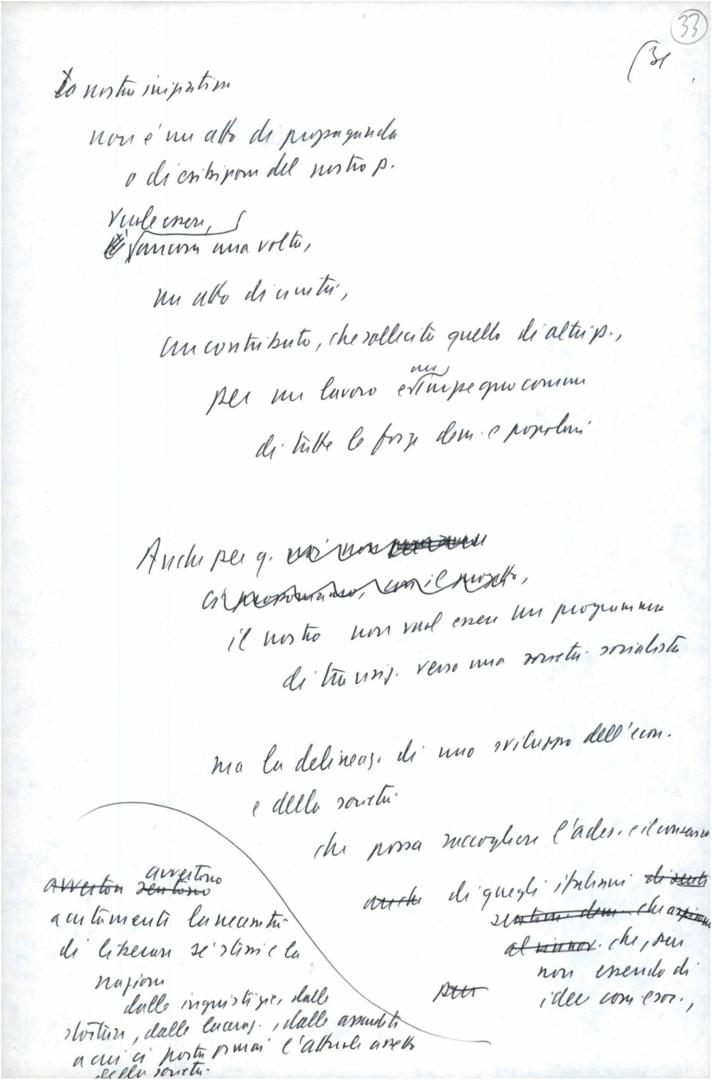 33
(3c
La nostra iniziativa
non è un atto di propaganda
o di esibizione del nostro p.
vuole essere,
ancora una volta,
un atto di unità,
un contributo, che solleciti quello di altri p.,
per un lavoro e un impegno comune
di tutte le forze dem. e popolari
Anche per q.
ci proponiamo, con il progetto,
il nostro non vuol essere un programma
di transiz. verso una società socialista
ma la delineaz. di uno sviluppo dell'econ.
e della società
che possa raccogliere l'ades. e il consenso
anche di quegli italiani
che, pur
non essendo di
pur
idee com. e soc.,
avverton sentono
avvertono
acutamente la necessità
di liberare se stessi e la
nazione
dalle ingiustizie, dalle
storture, dalle laceraz., dalle assurdità
a cui ci porta ormai l'attuale assetto
della società.